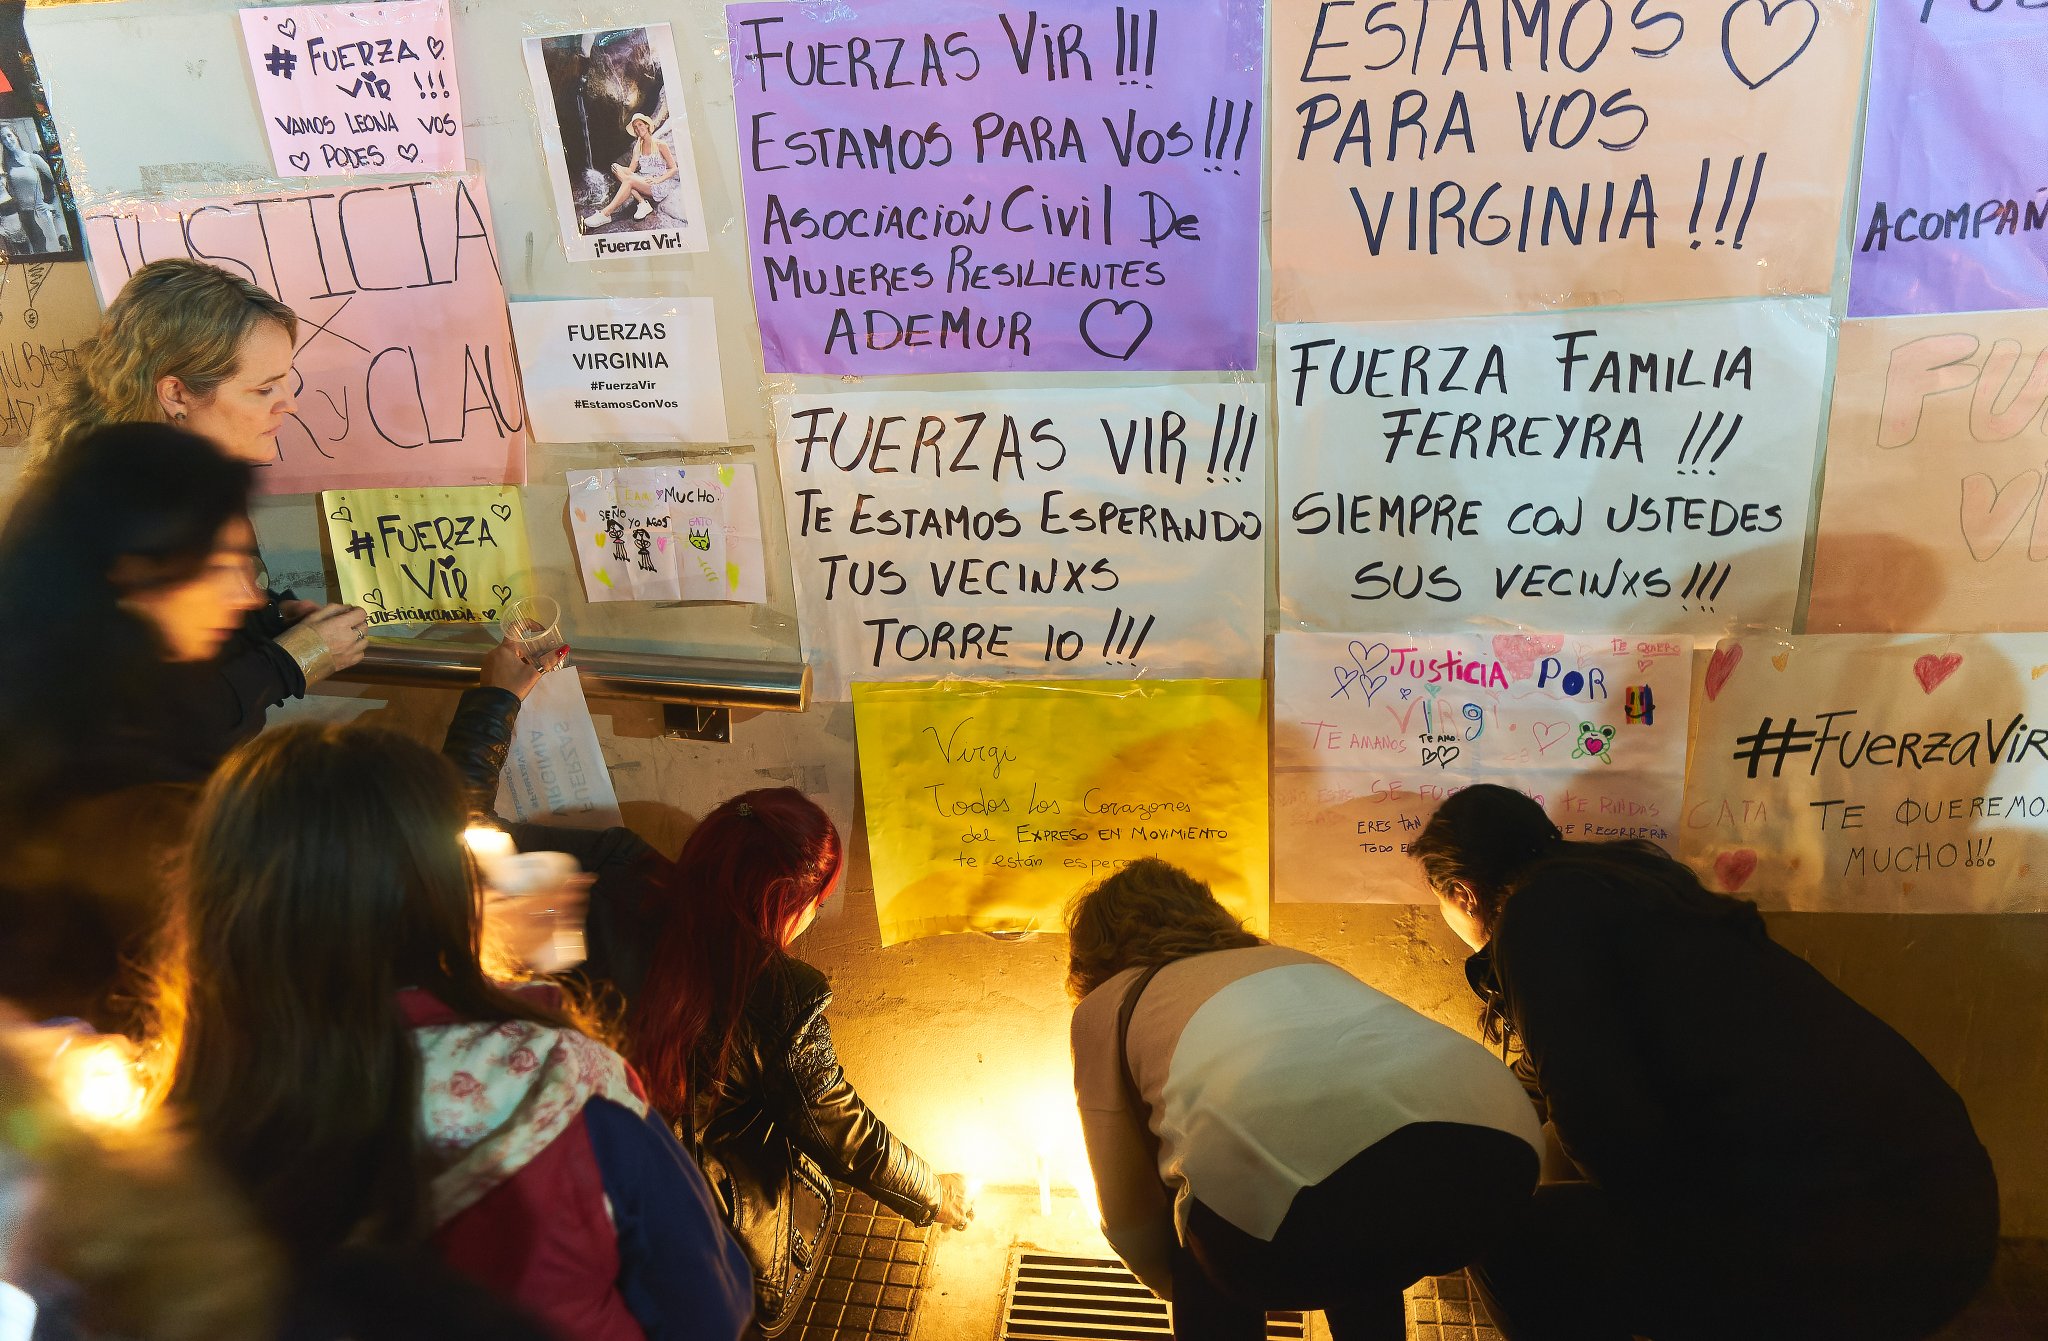 # FUERZA
VIR !!!
VAMOS LEONA VOS
PODES
JUSTICIA
X
R y CLAU
¡Fuerza Vir!
FUERZAS
VIRGINIA
#FuerzaVir
#EstamosConVos
# FUERZA
VIR
MUCHO.
SEÑO
YO AGOS
GATO
FUERZAS VIR !!!
ESTAMOS PARA VOS !!!
ASOCIACIÓN CIVIL DE
MUJERES RESILIENTES
ADEMUR
ESTAMOS
PARA VOS
VIRGINIA !!!
ACOMPAÑ
FUERZAS VIR !!!
TE ESTAMOS ESPERANDO
TUS VECINXS
TORRE 10 !!!
FUERZA FAMILIA
FERREYRA !!!
SIEMPRE CON USTEDES
SUS VECINXS !!!
FU
VI
Virgi
Todos los Corazones
del EXPRESO EN MOVIMIENTO
te están esperand
JUSTICIA POR
VIRGI.
TE QUIERO
TE AMAMOS
TE AMO.
SE FUE
TE RINDAS
ERES TAN
RECORRERA
TODO
#FuerzaVir
CATA TE QUEREMOS
MUCHO!!!
FUERZAS
VIRGINIA